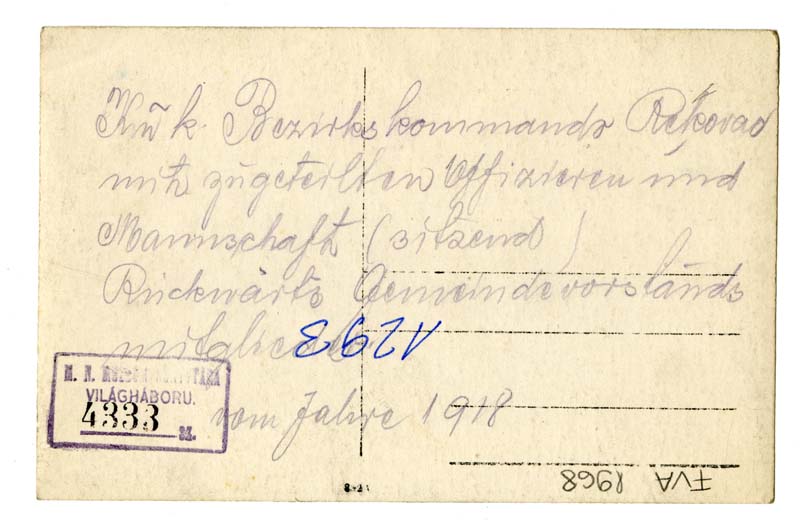 K u k. Bezirkskommando Rekovac
mit zugeteilten Offizieren und
Mannschaft (sitzend)
Rückwärts Gemeindevorstands
mitglieder
A293
vom Jahre 1918
M. N. MUZEUM KÖNYVTÁRA
VILÁGHÁBORU.
4333
FVA 1968